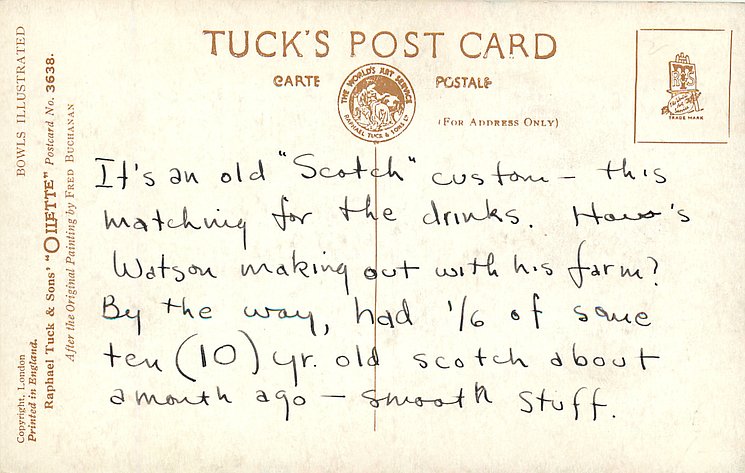 TUCK'S POST CARD
CARTE POSTALE
THE WORLD'S ART SERVICE
RAPHAEL TUCK & SONS LD
(FOR ADDRESS ONLY)
TRADE MARK
BOWLS ILLUSTRATED
Raphael Tuck & Sons' "OILETTE" Postcard No. 3638.
After the Original Painting by FRED BUCHANAN
Copyright, London
Printed in England.
It's an old "Scotch" custom – this
matching for the drinks. How's
Watson making out with his farm?
By the way, had 1/6 of some
ten (10) yr. old scotch about
a month ago – smooth stuff.